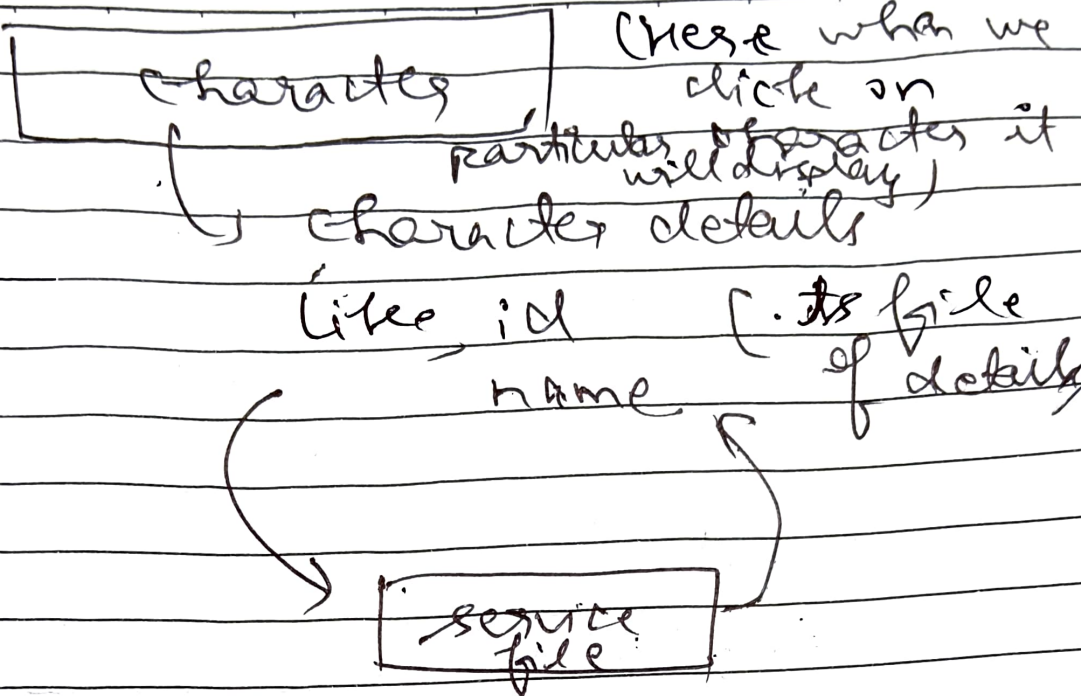 character
(Here when we
click on
particular character it
will display)
character details
like id
(. Its file
of details
name
service
file